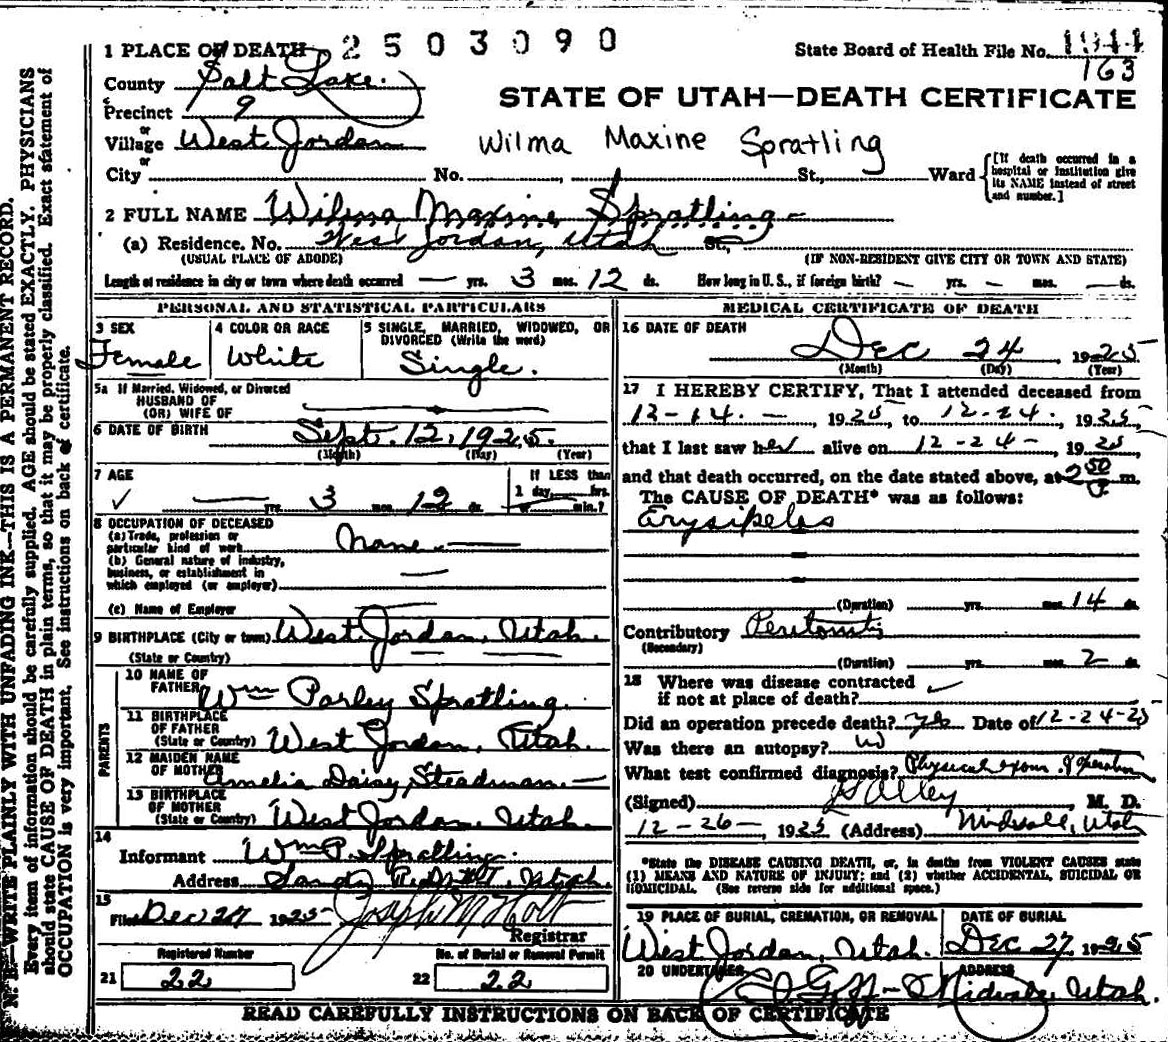 1 PLACE OF DEATH 2503090 State Board of Health File No. 1944
163
County Salt Lake.
Precinct 9
STATE OF UTAH—DEATH CERTIFICATE
or
Village West Jordan Wilma Maxine Spratling
or
City No. , St., Ward [If death occurred in a hospital or institution give its NAME instead of street and number.]
2 FULL NAME Wilma Maxine Spratling
(a) Residence. No. West Jordan, Utah St.,
(USUAL PLACE OF ABODE) (IF NON-RESIDENT GIVE CITY OR TOWN AND STATE)
Length of residence in city or town where death occurred — yrs. 3 mos. 12 ds. How long in U.S., if foreign birth? — yrs. — mos. — ds.
PERSONAL AND STATISTICAL PARTICULARS
3 SEX Female
4 COLOR OR RACE White
5 SINGLE, MARRIED, WIDOWED, OR DIVORCED (Write the word) Single.
5a If Married, Widowed, or Divorced
HUSBAND OF
(OR) WIFE OF
6 DATE OF BIRTH Sept. 12, 1925.
(Month) (Day) (Year)
7 AGE If LESS than
✓ — yrs. 3 mos. 12 ds. 1 day, hrs.
or min.?
8 OCCUPATION OF DECEASED
(a) Trade, profession or
particular kind of work None —
(b) General nature of industry,
business, or establishment in
which employed (or employer) —
(c) Name of Employer
9 BIRTHPLACE (City or town) West Jordan, Utah.
(State or Country)
PARENTS
10 NAME OF
FATHER Wm Parley Spratling.
11 BIRTHPLACE
OF FATHER
(State or Country) West Jordan, Utah.
12 MAIDEN NAME
OF MOTHER Amelia Daisy Steadman —
13 BIRTHPLACE
OF MOTHER
(State or Country) West Jordan, Utah.
14
Informant Wm P. Spratling
Address Sandy Utah.
15
Filed Dec 27 1925 Joseph M Holt
Registrar
Registered Number No. of Burial or Removal Permit
21 22 22 22
MEDICAL CERTIFICATE OF DEATH
16 DATE OF DEATH
Dec 24, 1925
(Month) (Day) (Year)
17 I HEREBY CERTIFY, That I attended deceased from
12-14. —, 1925 to 12-24., 1925
that I last saw her alive on 12-24-, 1925
and that death occurred, on the date stated above, at 2 50 P. m.
The CAUSE OF DEATH* was as follows:
Erysipelas
(Duration) yrs. mos. 14 ds.
Contributory Peritonitis
(Secondary)
(Duration) yrs. mos. 2 ds.
18 Where was disease contracted
if not at place of death? ✓
Did an operation precede death? Yes Date of 12-24-25
Was there an autopsy? no
What test confirmed diagnosis? Physical exam. & Operation
(Signed) Alley, M. D.
12-26-, 1925 (Address) Midvale, Utah
*State the DISEASE CAUSING DEATH, or, in deaths from VIOLENT CAUSES state
(1) MEANS AND NATURE OF INJURY; and (2) whether ACCIDENTAL, SUICIDAL OR
HOMICIDAL. (See reverse side for additional space.)
19 PLACE OF BURIAL, CREMATION, OR REMOVAL DATE OF BURIAL
West Jordan, Utah. Dec 27 1925
20 UNDERTAKER ADDRESS
Goff- Midvale, Utah.
READ CAREFULLY INSTRUCTIONS ON BACK OF CERTIFICATE
N. B.—WRITE PLAINLY WITH UNFADING INK—THIS IS A PERMANENT RECORD.
Every item of information should be carefully supplied. AGE should be stated EXACTLY. PHYSICIANS
should state CAUSE OF DEATH in plain terms, so that it may be properly classified. Exact statement of
OCCUPATION is very important. See instructions on back of certificate.